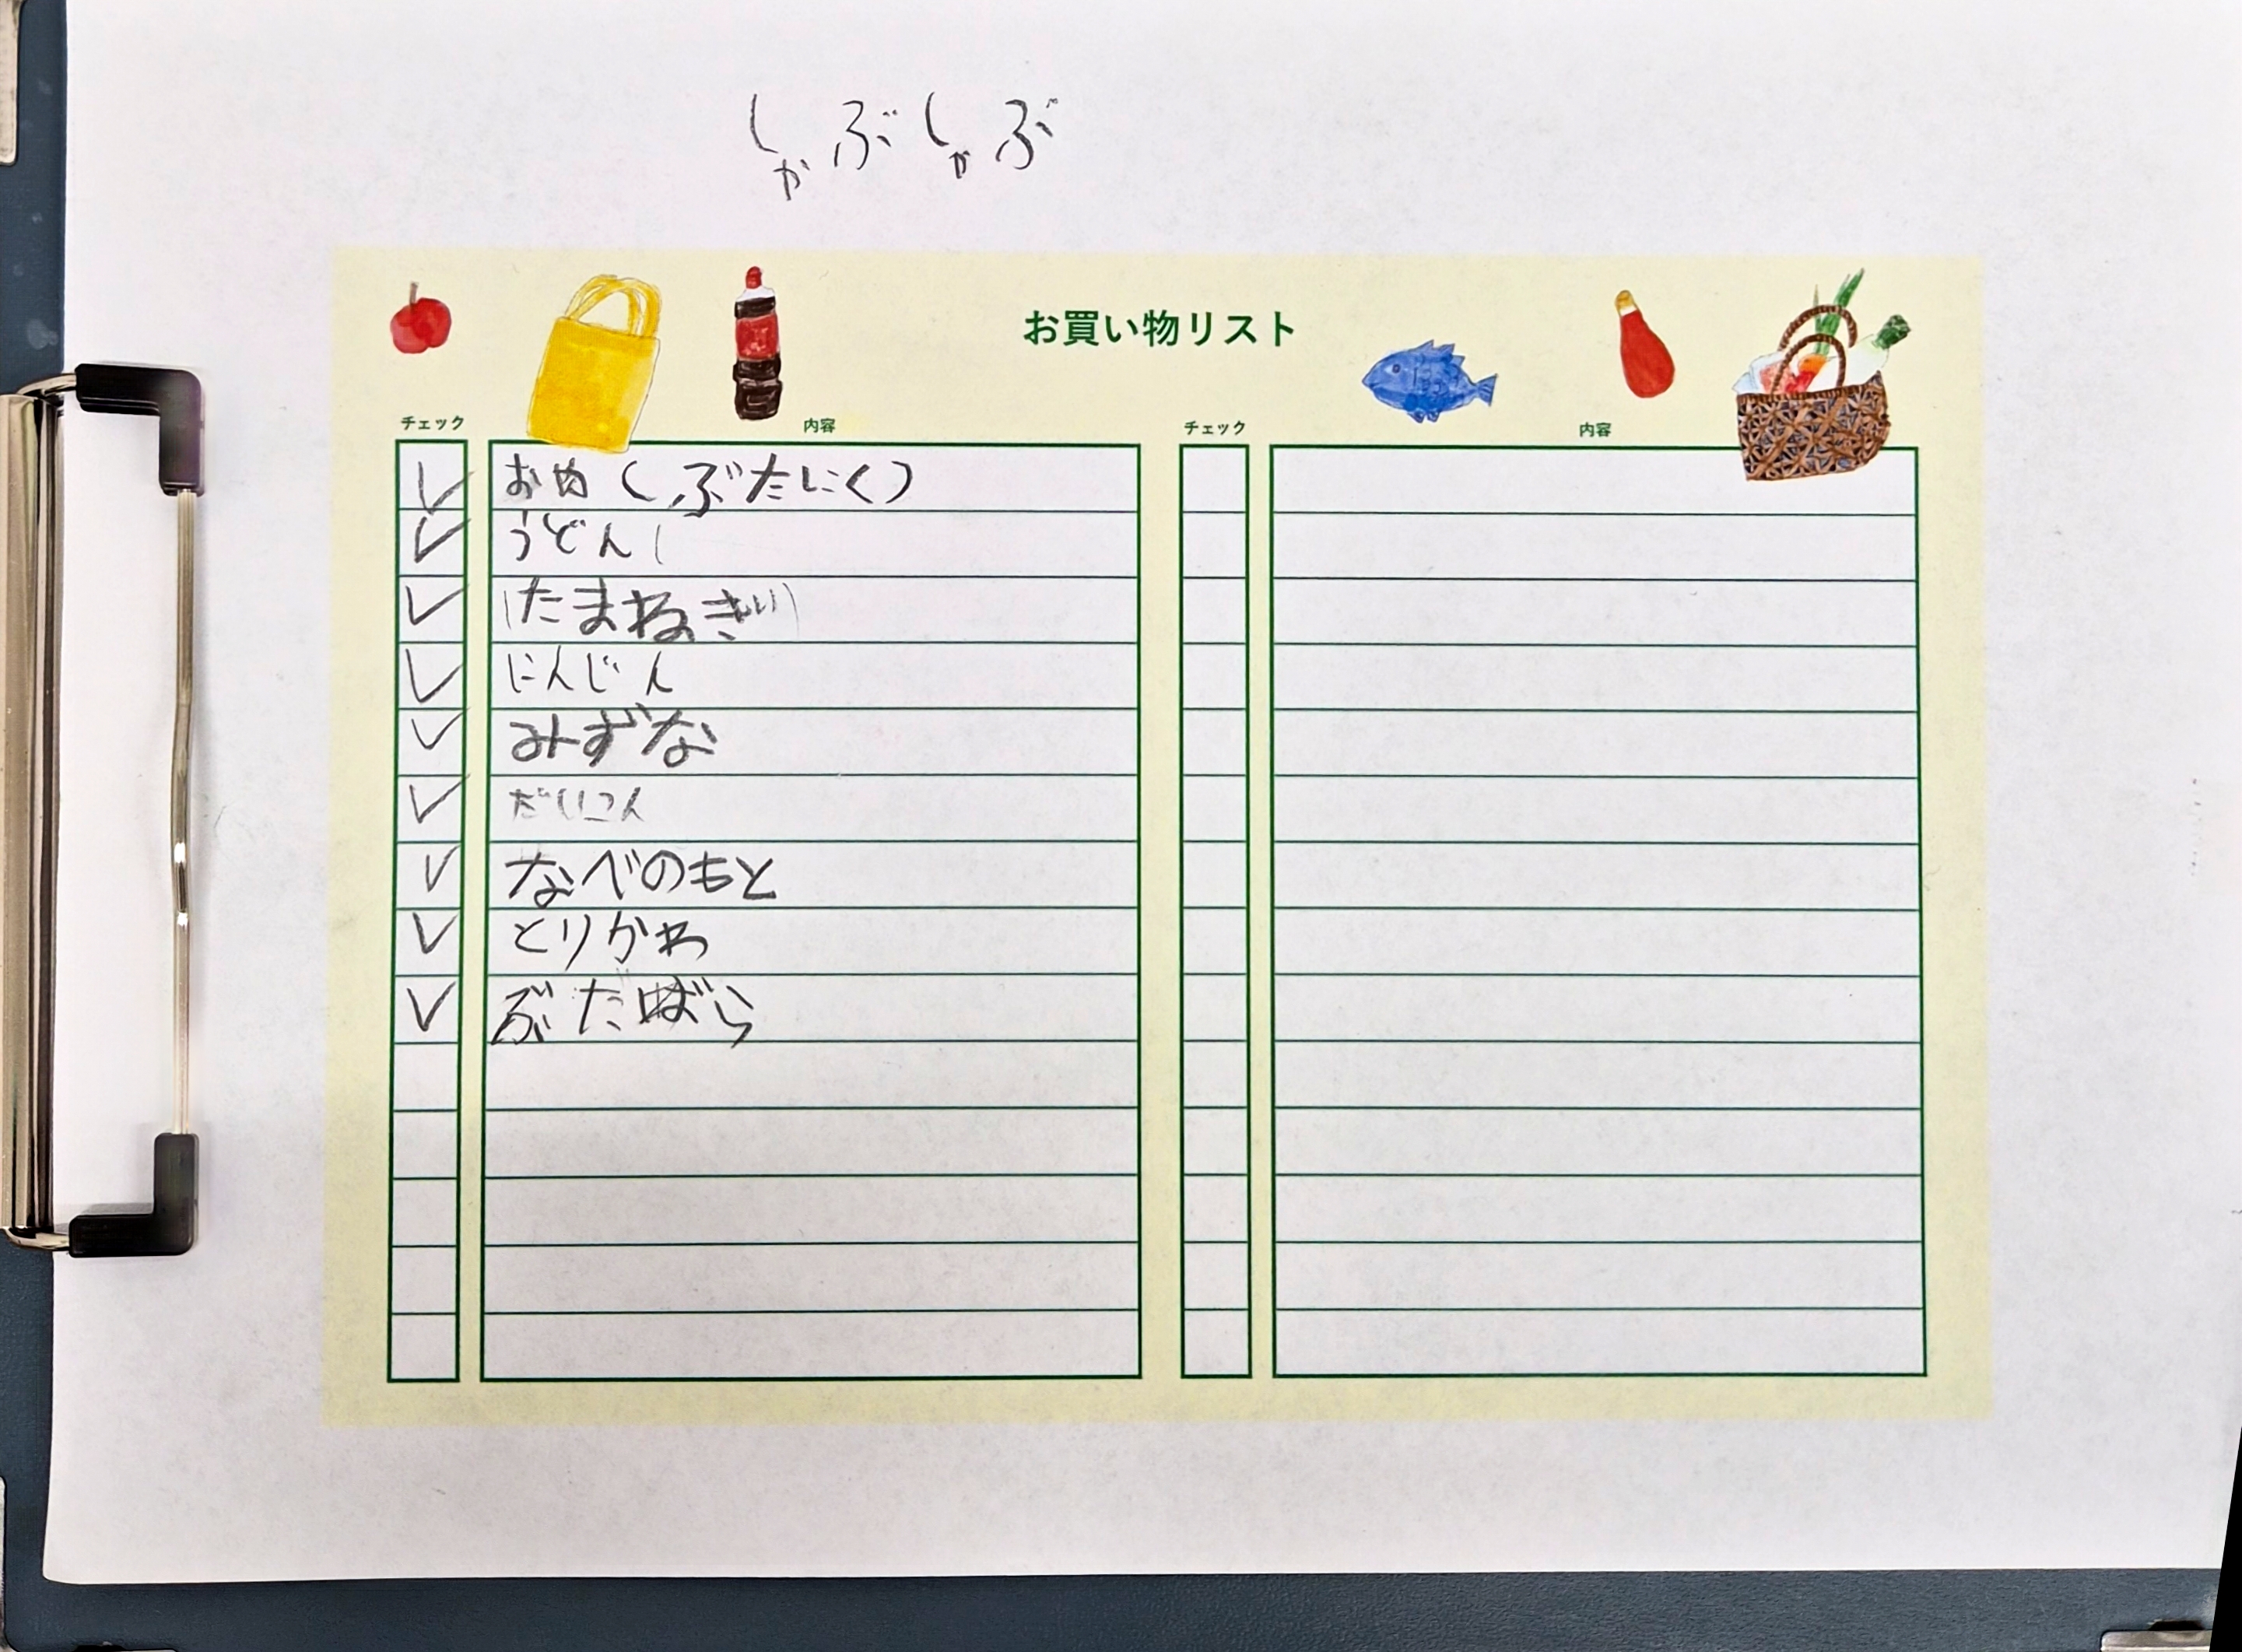 しゃぶしゃぶ
お買い物リスト
チェック 内容 チェック 内容
お肉(ぶたにく)
うどん
(たまねぎ)
にんじん
みずな
だいこん
なべのもと
とりかわ
ぶたばら